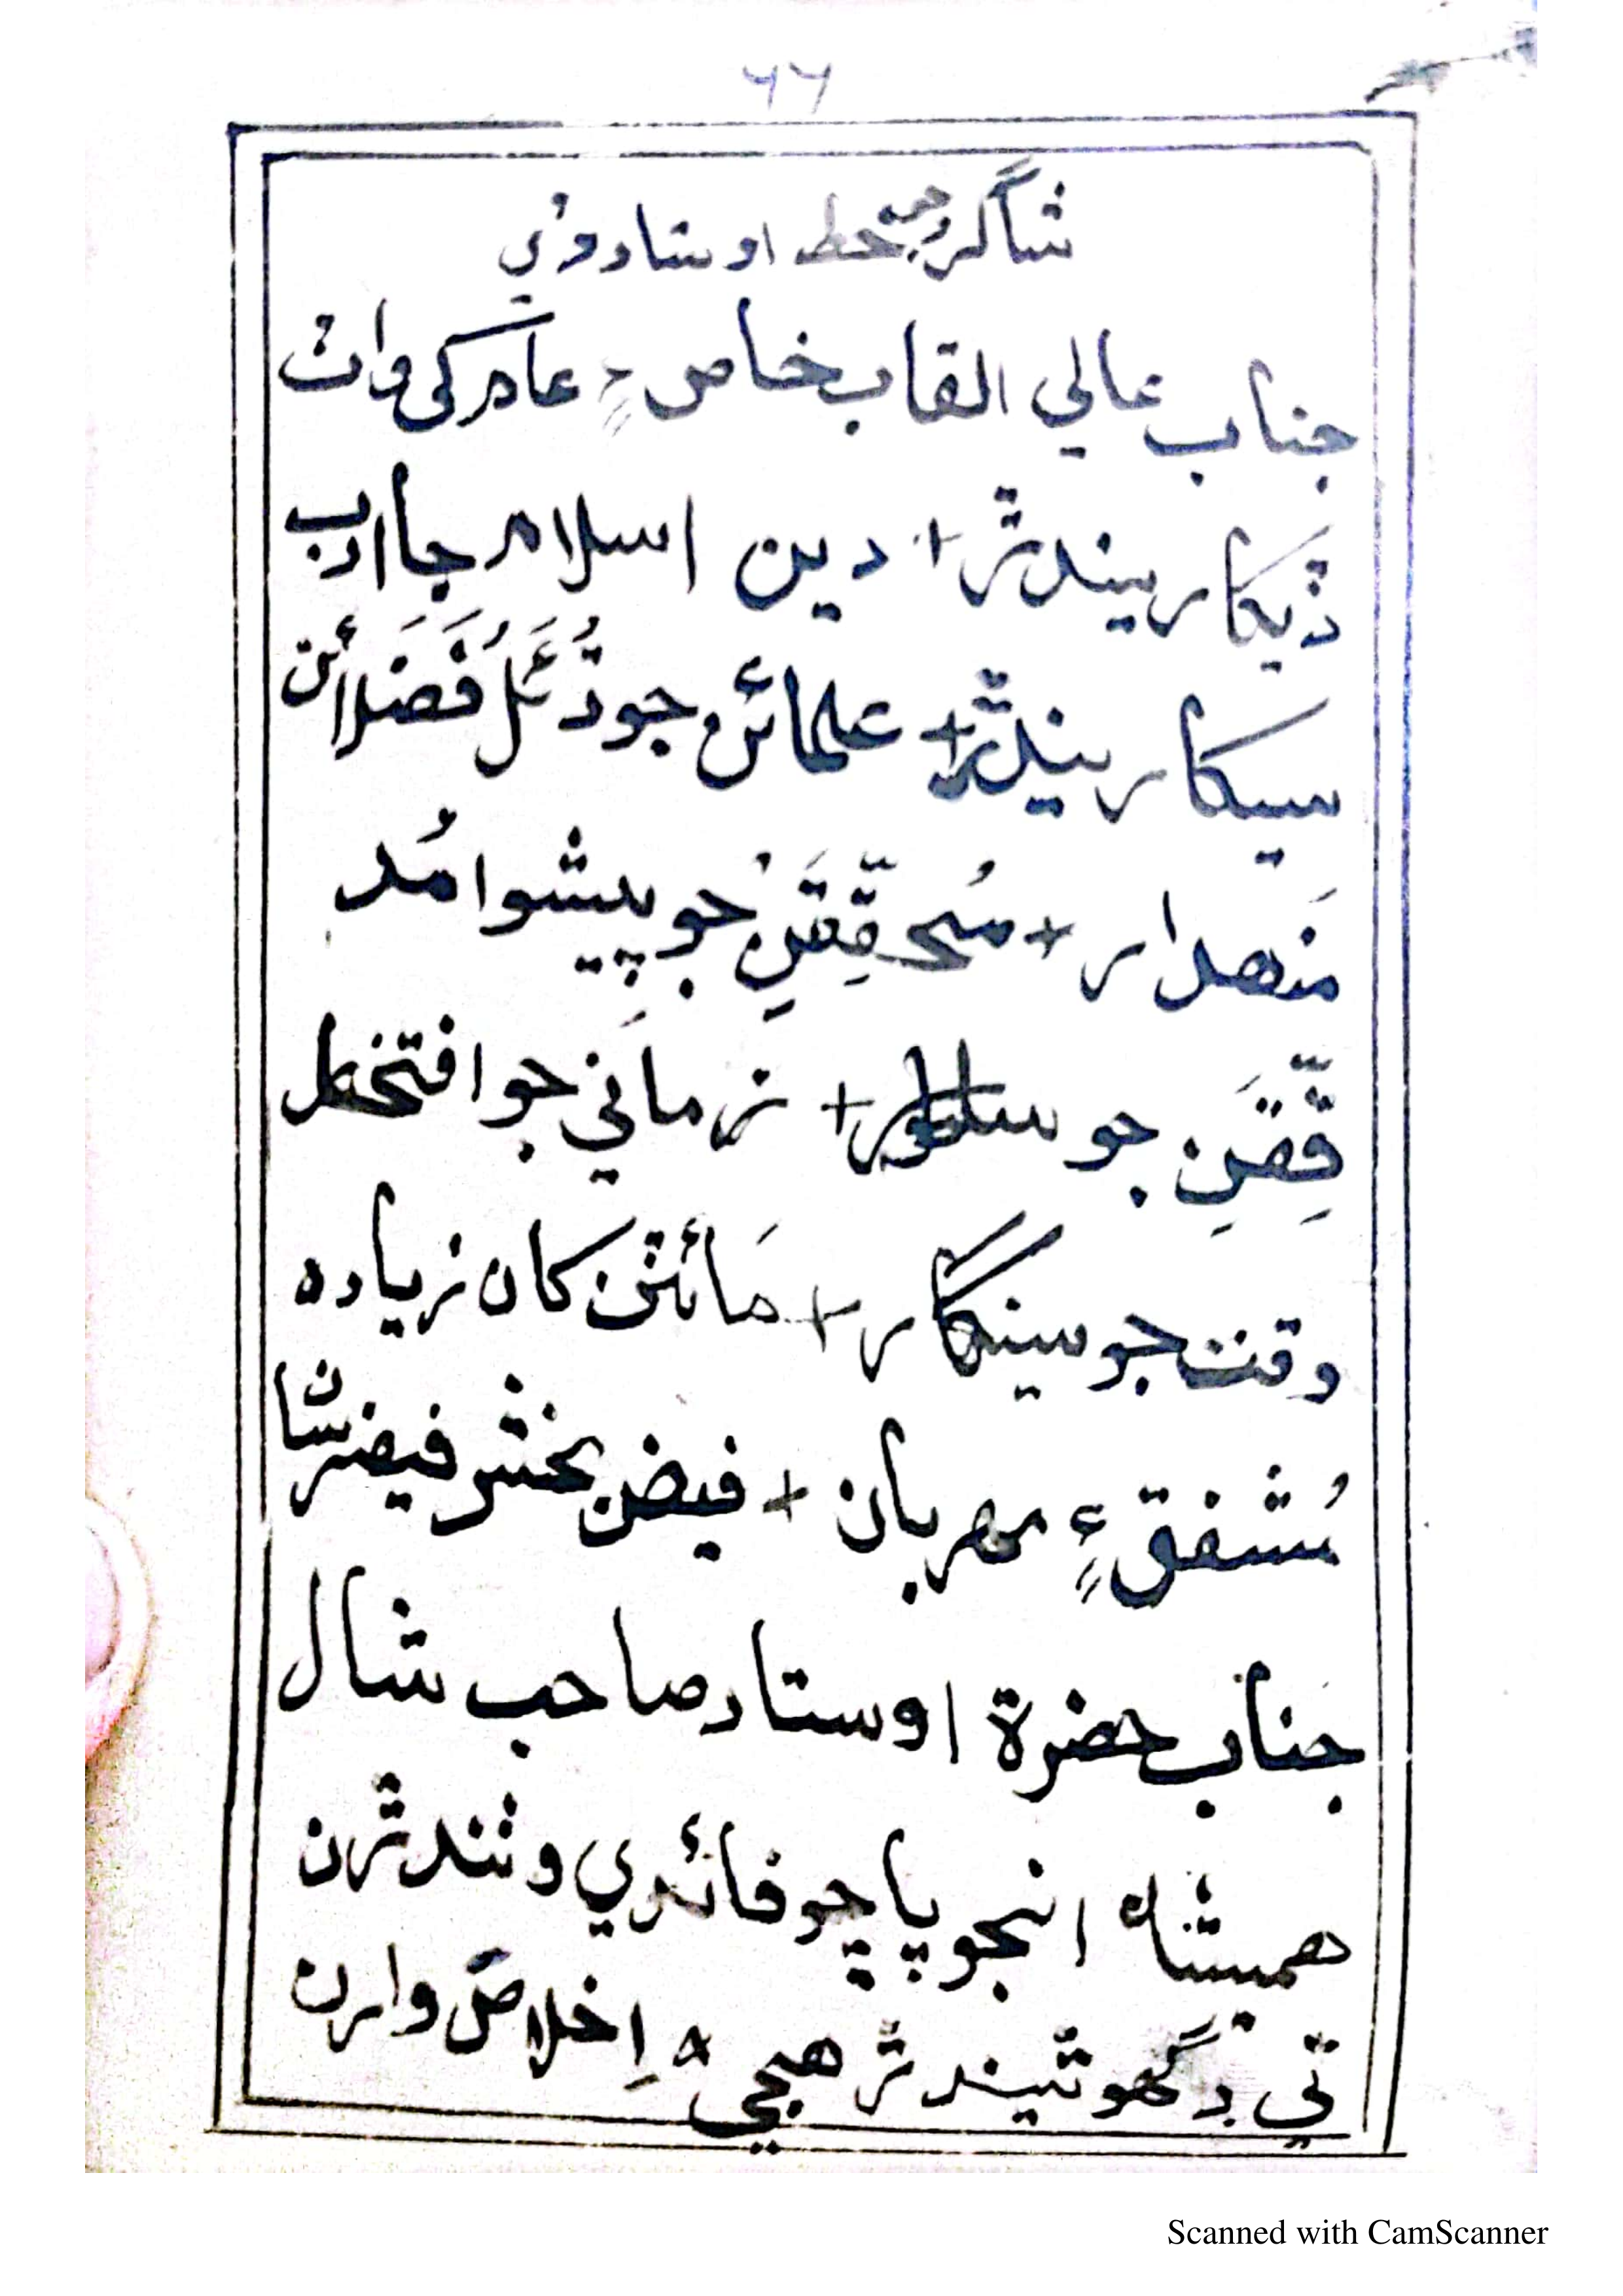 ٦٦
شاگرد جو خط اوستاد ڏي
جناب عالي القاب خاص ۽ عام کي واٽ
ڏيکاريندڙ + دين اسلام جا ادب
سيکاريندڙ + علمائن جو دُئَلُ فُضَلائن
مَنهدار + مُحقِّقَنِ جو پيشوا مُد
قِّقَنِ جو سالار + زماني جو افتخار
وقت جو سينگار + مائٽن کان زياده
مُشفق ۽ مهربان + فيض بخش فيض رسان
جناب حضرة اوستاد صاحب شال
هميشاه انجو پاڇو فائدي وٺندڙن
تي ڊگهو ٿيندڙ هجي ^ اِخلاص وارن
Scanned with CamScanner